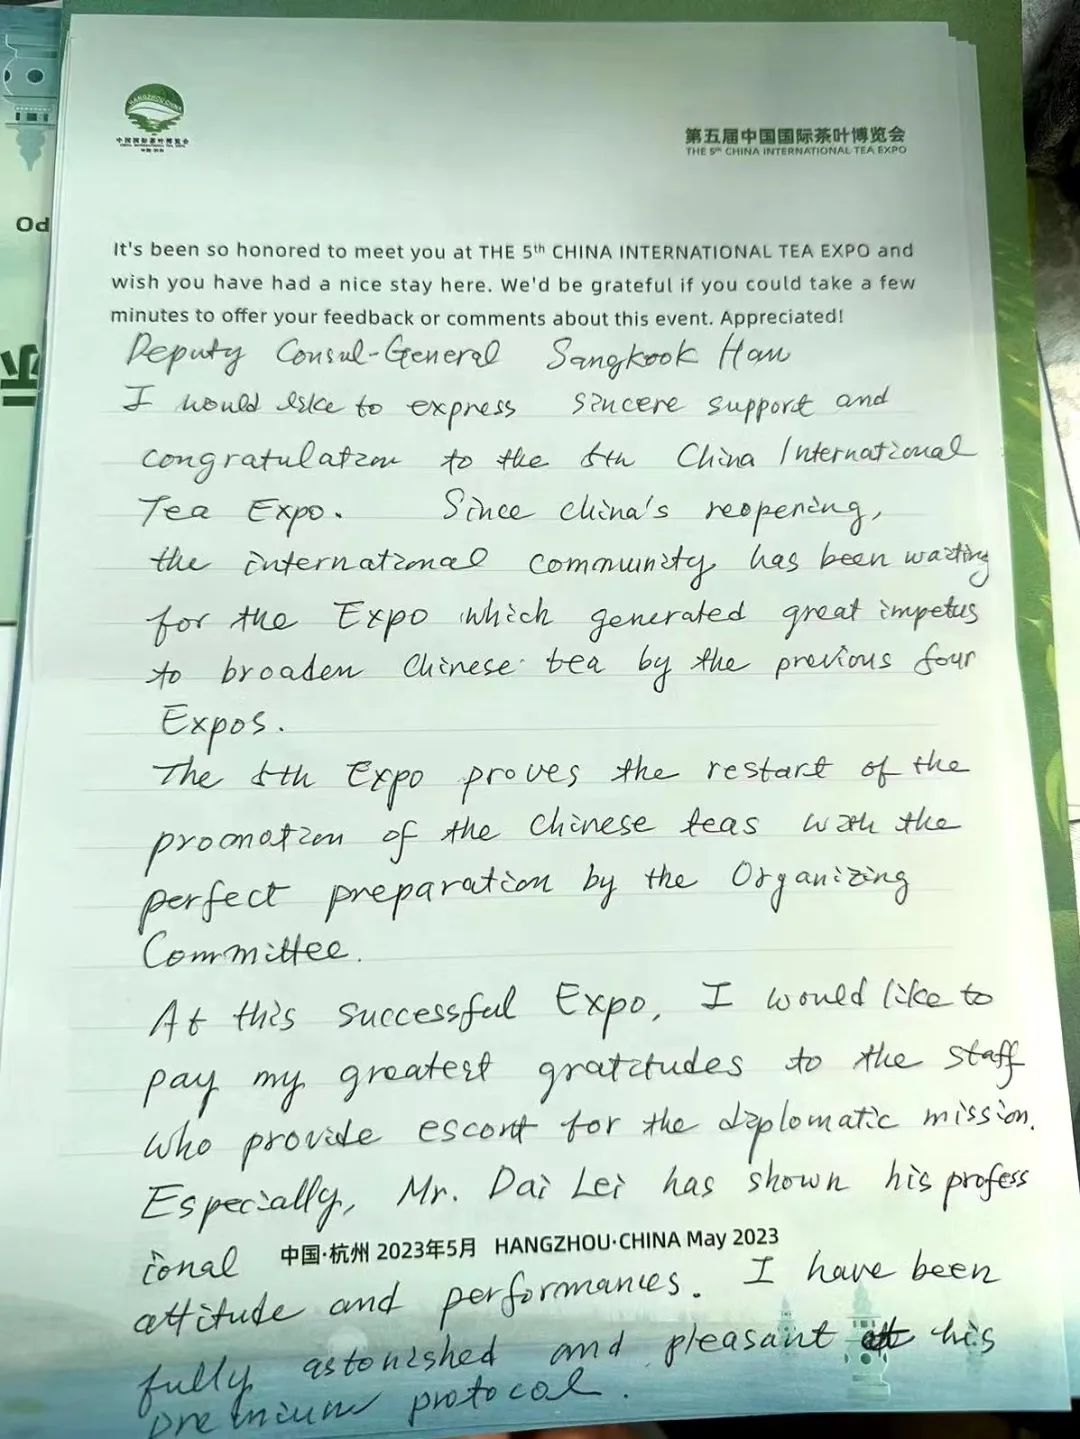 HANGZHOU·CHINA
中国国际茶叶博览会
CHINA INTERNATIONAL TEA EXPO
中国·杭州
第五届中国国际茶叶博览会
THE 5th CHINA INTERNATIONAL TEA EXPO
PO
It's been so honored to meet you at THE 5th CHINA INTERNATIONAL TEA EXPO and
wish you have had a nice stay here. We'd be grateful if you could take a few
minutes to offer your feedback or comments about this event. Appreciated!
Deputy Consul-General Sangkook Han
I would like to express sincere support and
congratulation to the 5th China International
Tea Expo. Since china's reopening,
the international community has been waiting
for the Expo which generated great impetus
to broaden Chinese tea by the previous four
Expos.
The 5th Expo proves the restart of the
promotion of the Chinese teas with the
perfect preparation by the Organizing
Committee.
At this successful Expo, I would like to
pay my greatest gratitudes to the staff
who provide escort for the diplomatic mission.
Especially, Mr. Dai Lei has shown his profess
ional
中国·杭州 2023年5月 HANGZHOU·CHINA May 2023
attitude and performances. I have been
fully astonished and pleasant at his
premium protocol.